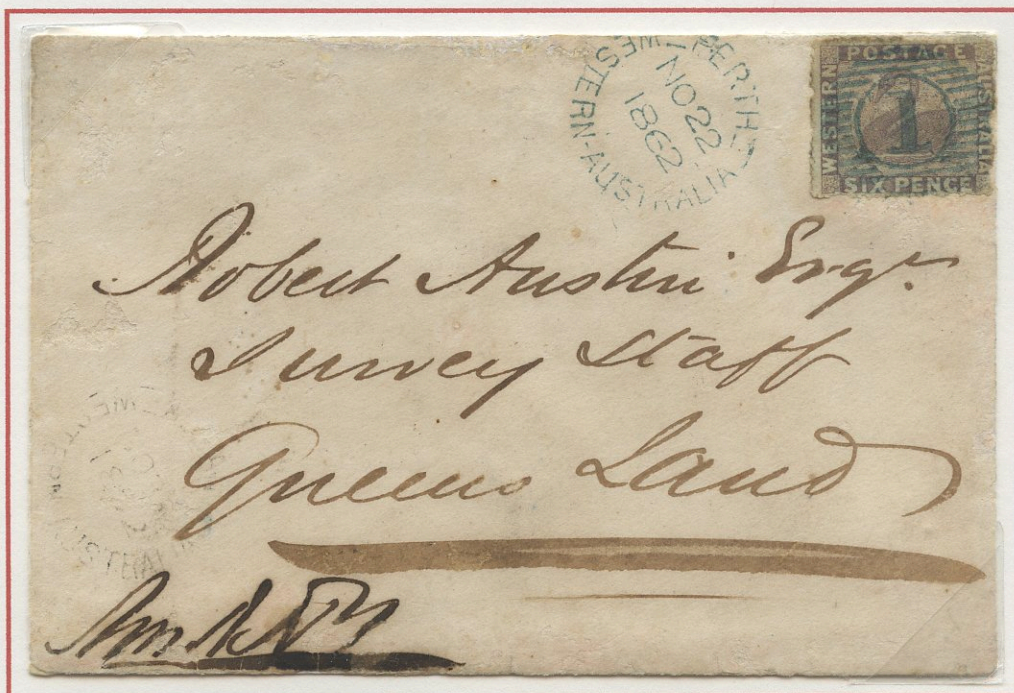 PERTH
WESTERN-AUSTRALIA
NO 22
1862
POSTAGE
WESTERN
AUSTRALIA
1
SIX PENCE
Robert Austin Esqr.
Survey Staff
Queens Land